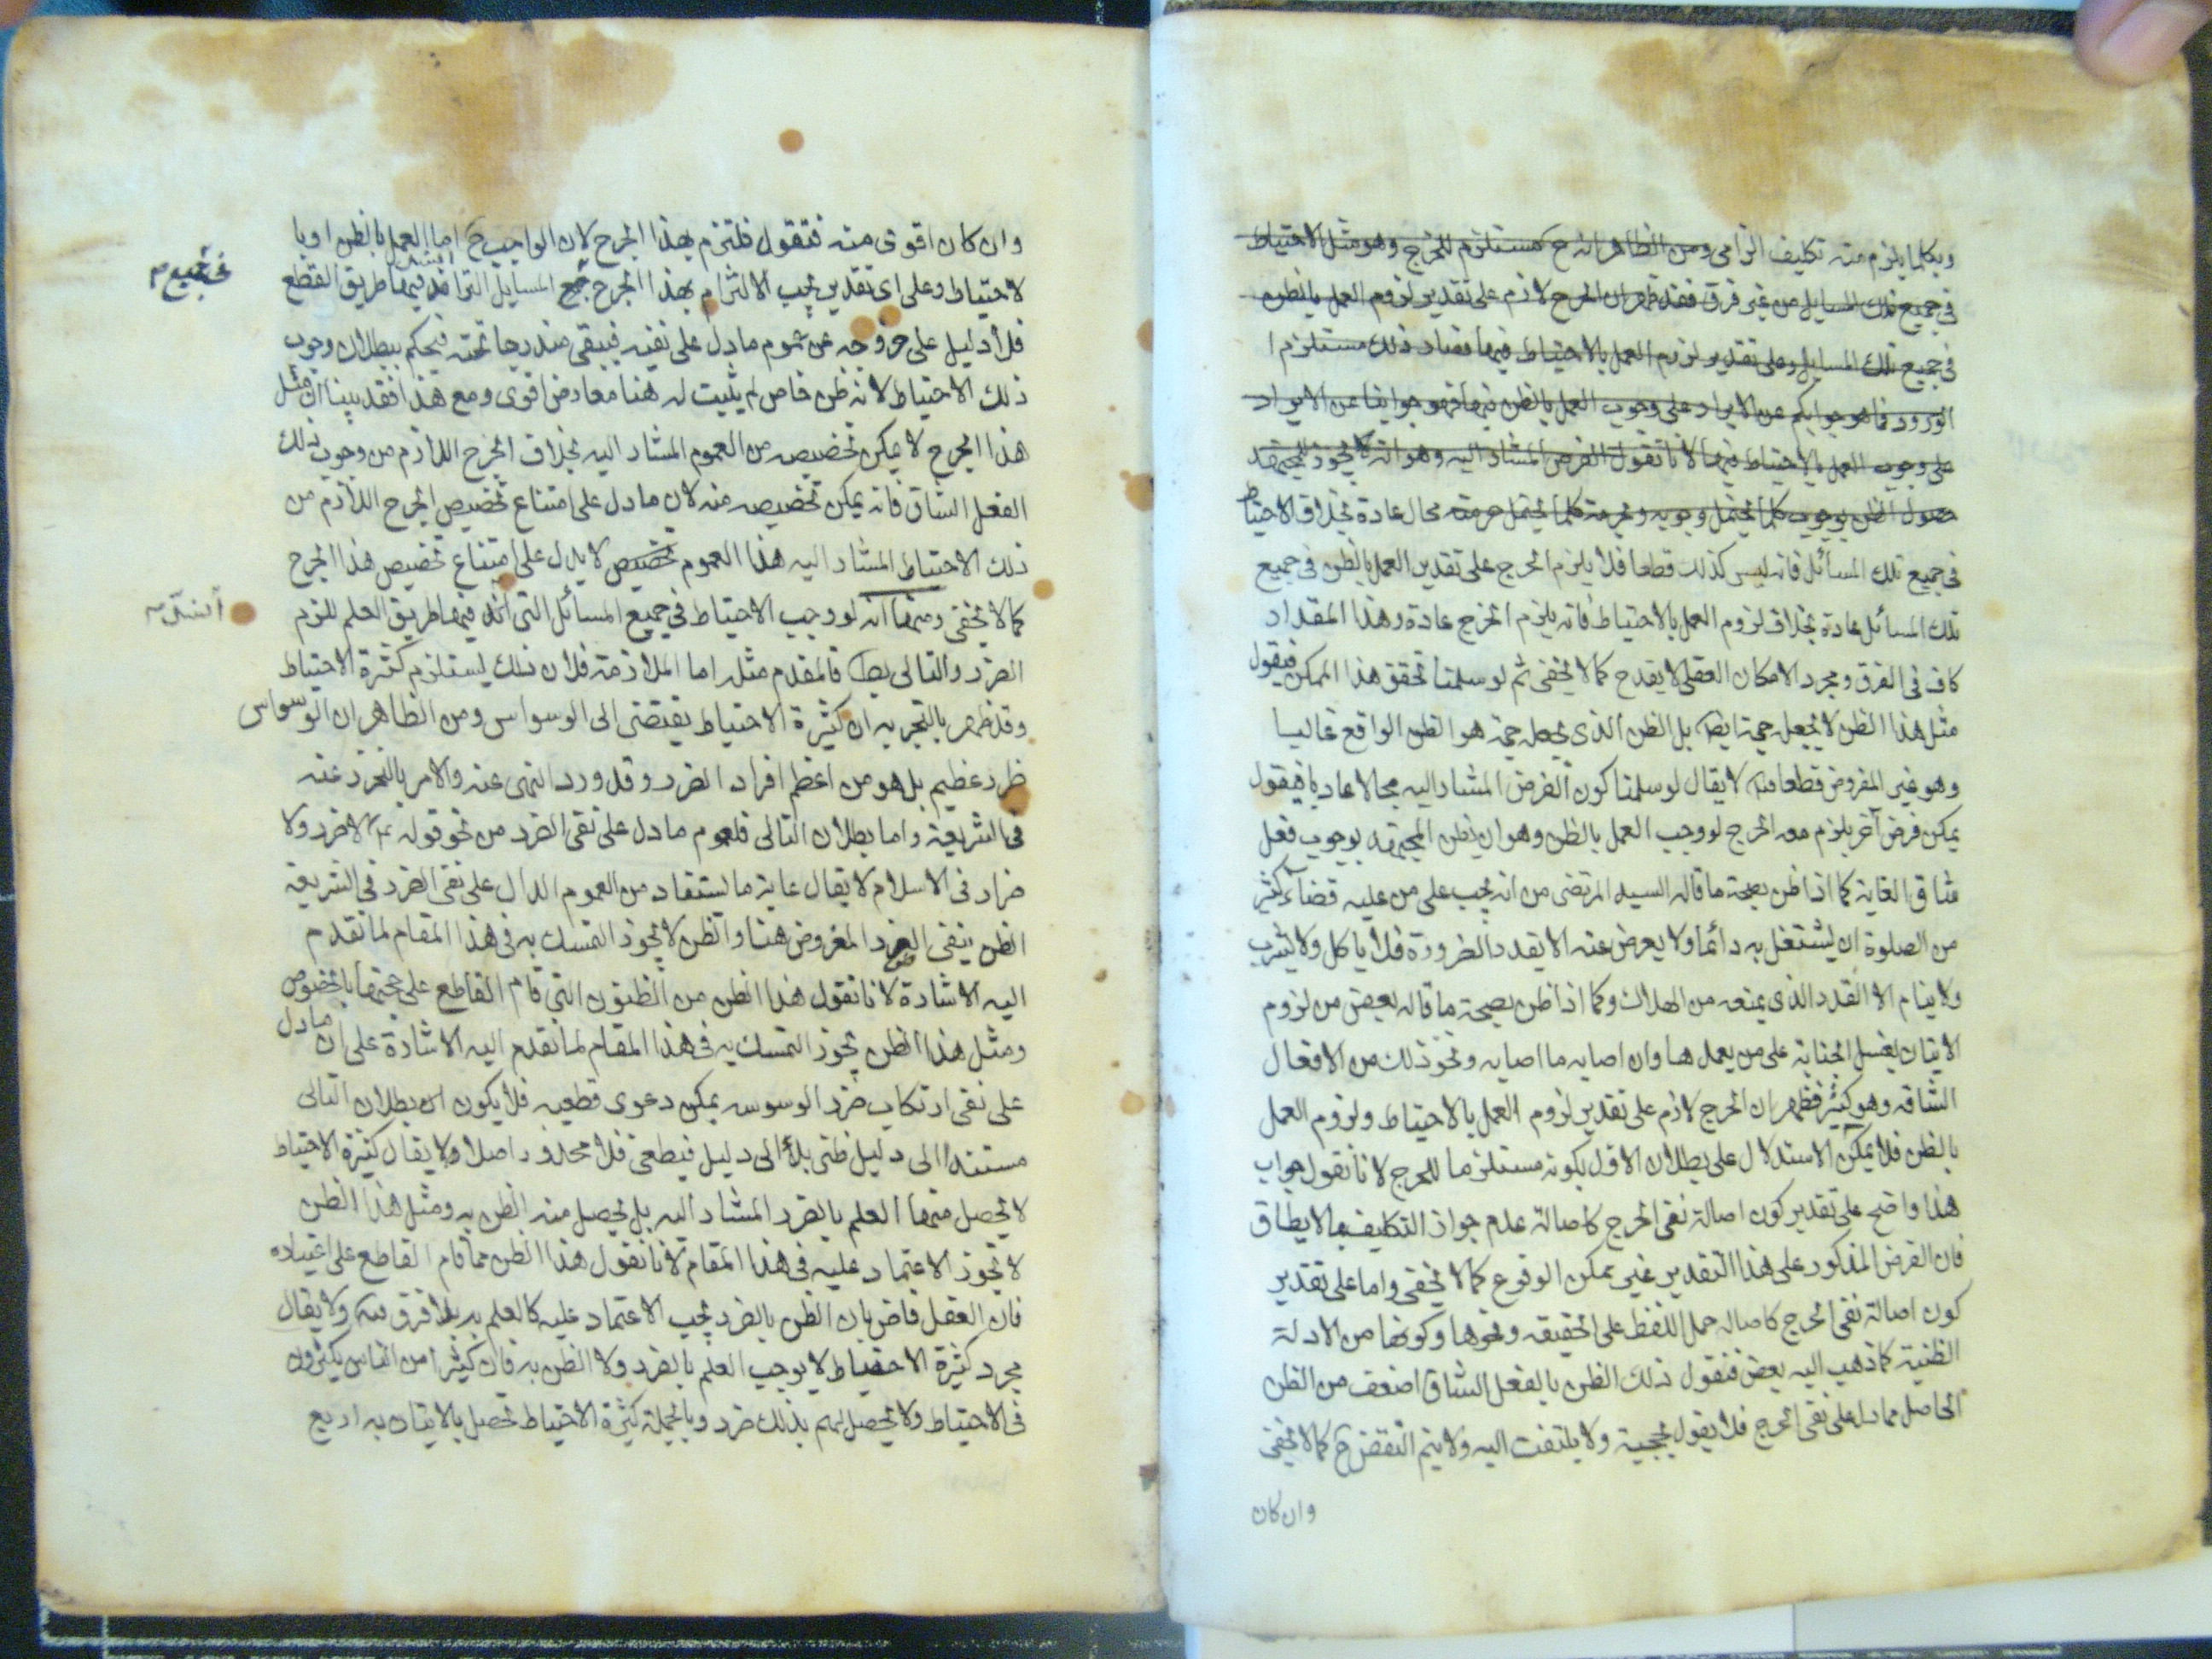 وبكلما يلزم منه تكليف الزامى ومن الظاهر انه ح مستلزم للحرج وهو مثل الاحتياط
فى جميع تلك المسايل من غير فرق فقد ظهر ان الحرج لازم على تقدير لزوم العمل بالظن
فى جميع تلك المسايل وعلى تقدير لزوم العمل بالاحتياط فيها فصار ذلك مستلزم ا
الورود فما هو جوابكم عن الايراد على وجوب العمل بالظن فيها فهو جوابنا عن الايراد
على وجوب العمل بالاحتياط فيها لانا نقول الفرض المشار اليه وهو انه لا يجوز للمجتهد
حصول الظن بوجوب كلما يحتمل وجوبه وبحرمة كلما يحتمل حرمته محال عادة بخلاف الاحتياط
فى جميع تلك المسائل فانه ليس كذلك قطعا فلا يلزم الحرج على تقدير العمل بالظن فى جميع
تلك المسائل عادة بخلاف لزوم العمل بالاحتياط فانه يلزم الحرج عادة وهذا المقدار
كاف فى الفرق ومجرد الامكان العقلى لا يقدح كما لا يخفى ثم لو سلمنا تحقق هذا الممكن فنقول
مثل هذا الظن لا نجعل حجة ايضا بل الظن الذى نجعله حجة هو الظن الواقع غالبا
وهو غير المفروض قطعا لا يقال لو سلمنا كون الفرض المشار اليه محالا عاديا فنقول
يمكن فرض آخر يلزم معه الحرج لو وجب العمل بالظن وهو ان يظن المجتهد بوجوب فعل
شاق الغاية كما اذا ظن بصحة ما قاله السيد المرتضى من انه يجب على من عليه قضاء كثير
من الصلوة ان يشتغل به دائما ولا يعرض عنه الا بقدر الضرورة فلا ياكل ولا يشرب
ولا ينام الا القدر الذى يمنعه من الهلاك وكما اذا ظن بصحة ما قاله بعض من لزوم
الاتيان بغسل الجنابة على من يعمدها وان اصابه ما اصابه ونحو ذلك من الافعال
الشاقه وهو كثير فظهر ان الحرج لازم على تقدير لزوم العمل بالاحتياط ولزوم العمل
بالظن فلا يمكن الاستدلال على بطلان الاول بكونه مستلزما للحرج لانا نقول جواب
هذا واضح على تقدير كون اصالة نفى الحرج كاصالة عدم جواز التكليف بما لا يطاق
فان الفرض المذكور على هذا التقدير غير ممكن الوقوع كما لا يخفى واما على تقدير
كون اصالة نفى الحرج كاصاله حمل اللفظ على الحقيقه ونحوها وكونها من الادلة
الظنية كما ذهب اليه بعض فنقول ذلك الظن بالفعل الشاق اضعف من الظن
الحاصل مما دل على نفى الحرج فلا يقول بحجية ولا يلتفت اليه ولا يتم النقض ح كما لا يخفى
وان كان
وان كان اقوى منه فنقول فلتزم بهذا الحرج لان الواجب ح اما العمل بالظن او با
لاحتياط وعلى اى تقدير يجب الالتزام بهذا الحرج جميع المسايل التى انسد فيها طريق القطع
فى جميع م
فلا دليل على خروجه عن عموم ما دل على نفيه فيبقى مندرجا تحته فيحكم ببطلان وجوب
ذلك الاحتياط لانه ظن خاص لم يثبت له هنا معارض اقوى ومع هذا فقد بينا ان مثل
هذا الحرج لا يمكن تخصيصه من العموم المشار اليه بخلاف الحرج اللازم من وجوب ذلك
الفعل الشاق فانه يمكن تخصيصه منه لان ما دل على امتناع تخصيص الحرج اللازم من
ذلك الاحتياط المشار اليه هذا العموم تخصيص لا يدل على امتناع تخصيص هذا الحرج
كما لا يخفى ومنها انه لو وجب الاحتياط فى جميع المسائل التى انسد فيها طريق العلم للزم
انسد م
الضرر والتالى بط فالمقدم مثله اما الملازمة فلان ذلك يستلزم كثرة الاحتياط
وقد ظهر بالتجربه ان كثرة الاحتياط يقتضى الى الوسواس ومن الظاهر ان الوسواس
ضرر عظيم بل هو من اعظم افراد الضرر وقد ورد النهى عنه والامر بالتحرز عنه
فى الشريعة واما بطلان التالى فلعموم ما دل على نفى الضرر من نحو قوله ع لا ضرر ولا
ضرار فى الاسلام لا يقال غاية ما يستفاد من العموم الدال على نفى الضرر فى الشريعة
الظن بنفى الضرر المفروض هنا والظن لا يجوز التمسك به فى هذا المقام لما تقدم
اليه الاشارة لانا نقول هذا الظن من الظنون التى قام القاطع على حجيتها بالخصوص
ومثل هذا الظن يجوز التمسك به فى هذا المقام لما تقدم اليه الاشارة على ان ما دل
على نفى ارتكاب ضرر الوسوسه يمكن دعوى قطعيه فلا يكون بطلان التالى
مستندا الى دليل ظنى بل الى دليل قطعى فلا محذور اصلا ولا يقال كثرة الاحتياط
لا يحصل منها العلم بالضرر المشار اليه بل يحصل منه الظن به ومثل هذا الظن
لا يجوز الاعتماد عليه فى هذا المقام لانا نقول هذا الظن مما قام القاطع على اعتباره
فان العقل قاض بان الظن بالضرر يجب الاعتماد عليه كالعلم به بلا فرق ولا يقال
مجرد كثرة الاحتياط لا يوجب العلم بالضرر ولا الظن به فان كثيرا من الناس يكثرون
فى الاحتياط ولا يحصل لهم بذلك ضرر وبالجملة كثرة الاحتياط تحصل بالاتيان به اربع